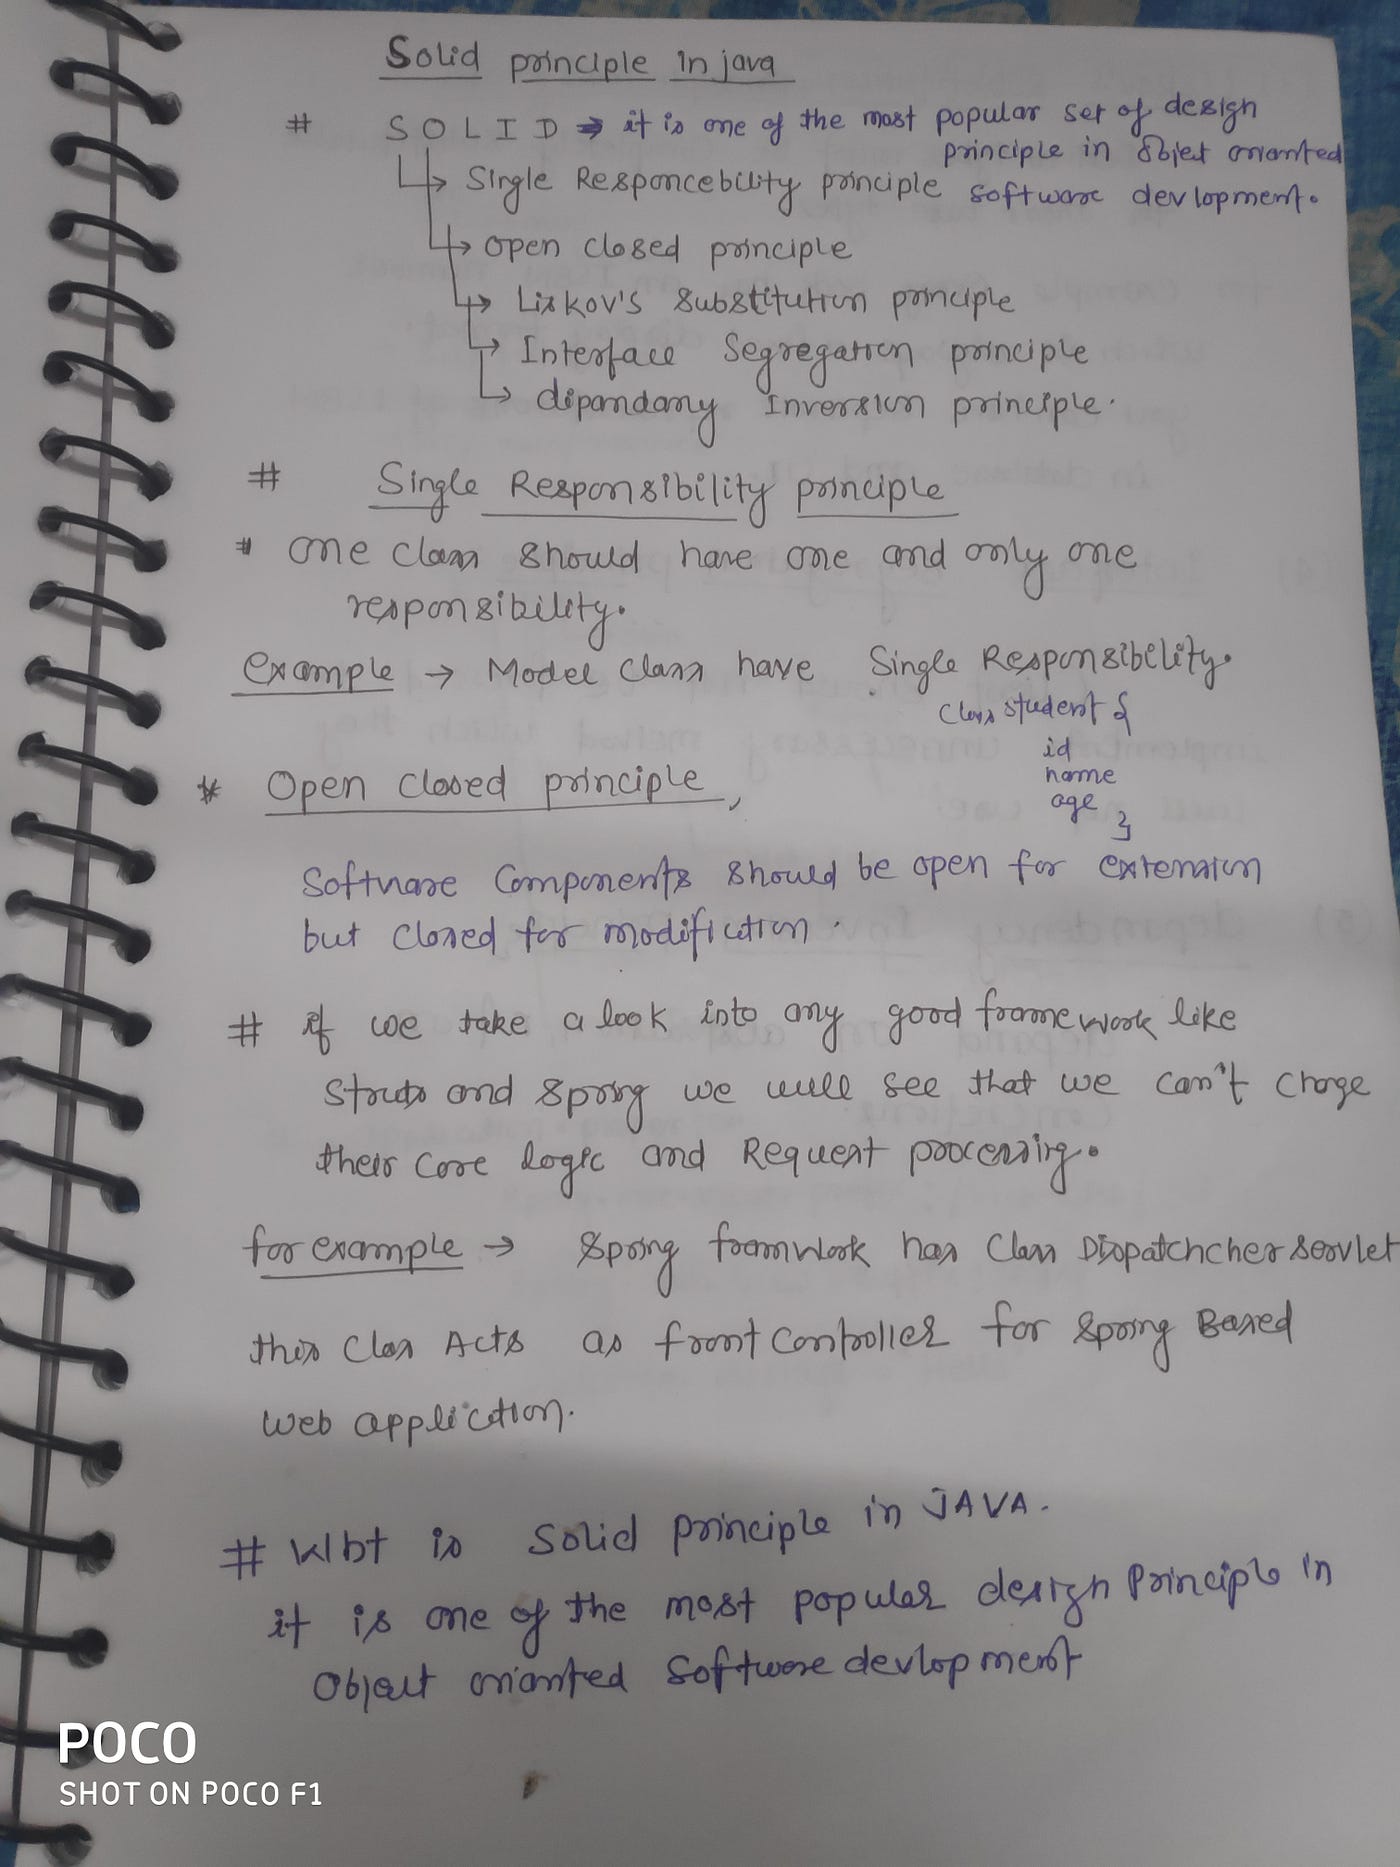 Solid principle in java
# S O L I D ⇒ it is one of the most popular set of design
principle in Objet orianted
software devlopment.
↳ Single Responcebility principle
↳ open closed principle
↳ Liskov's substitution principle
↳ Interface Segregation principle
↳ dipandany Inversion principle.
# Single Responsibility principle
* one class should have one and only one
responsibility.
Example → Model class have Single Responsibelity.
class student {
id
name
age
}
* Open closed principle,
Software Components should be open for extension
but closed for modification.
# if we take a look into any good framework like
Struts and spring we will see that we can't change
their core logic and Request processing.
for example → spring framwork has class Dispatchcher servlet
this class Acts as front controller for spring Based
web application.
# What is Solid principle in JAVA.
it is one of the most popular design Principle in
Object orianted software devlopment
POCO
SHOT ON POCO F1